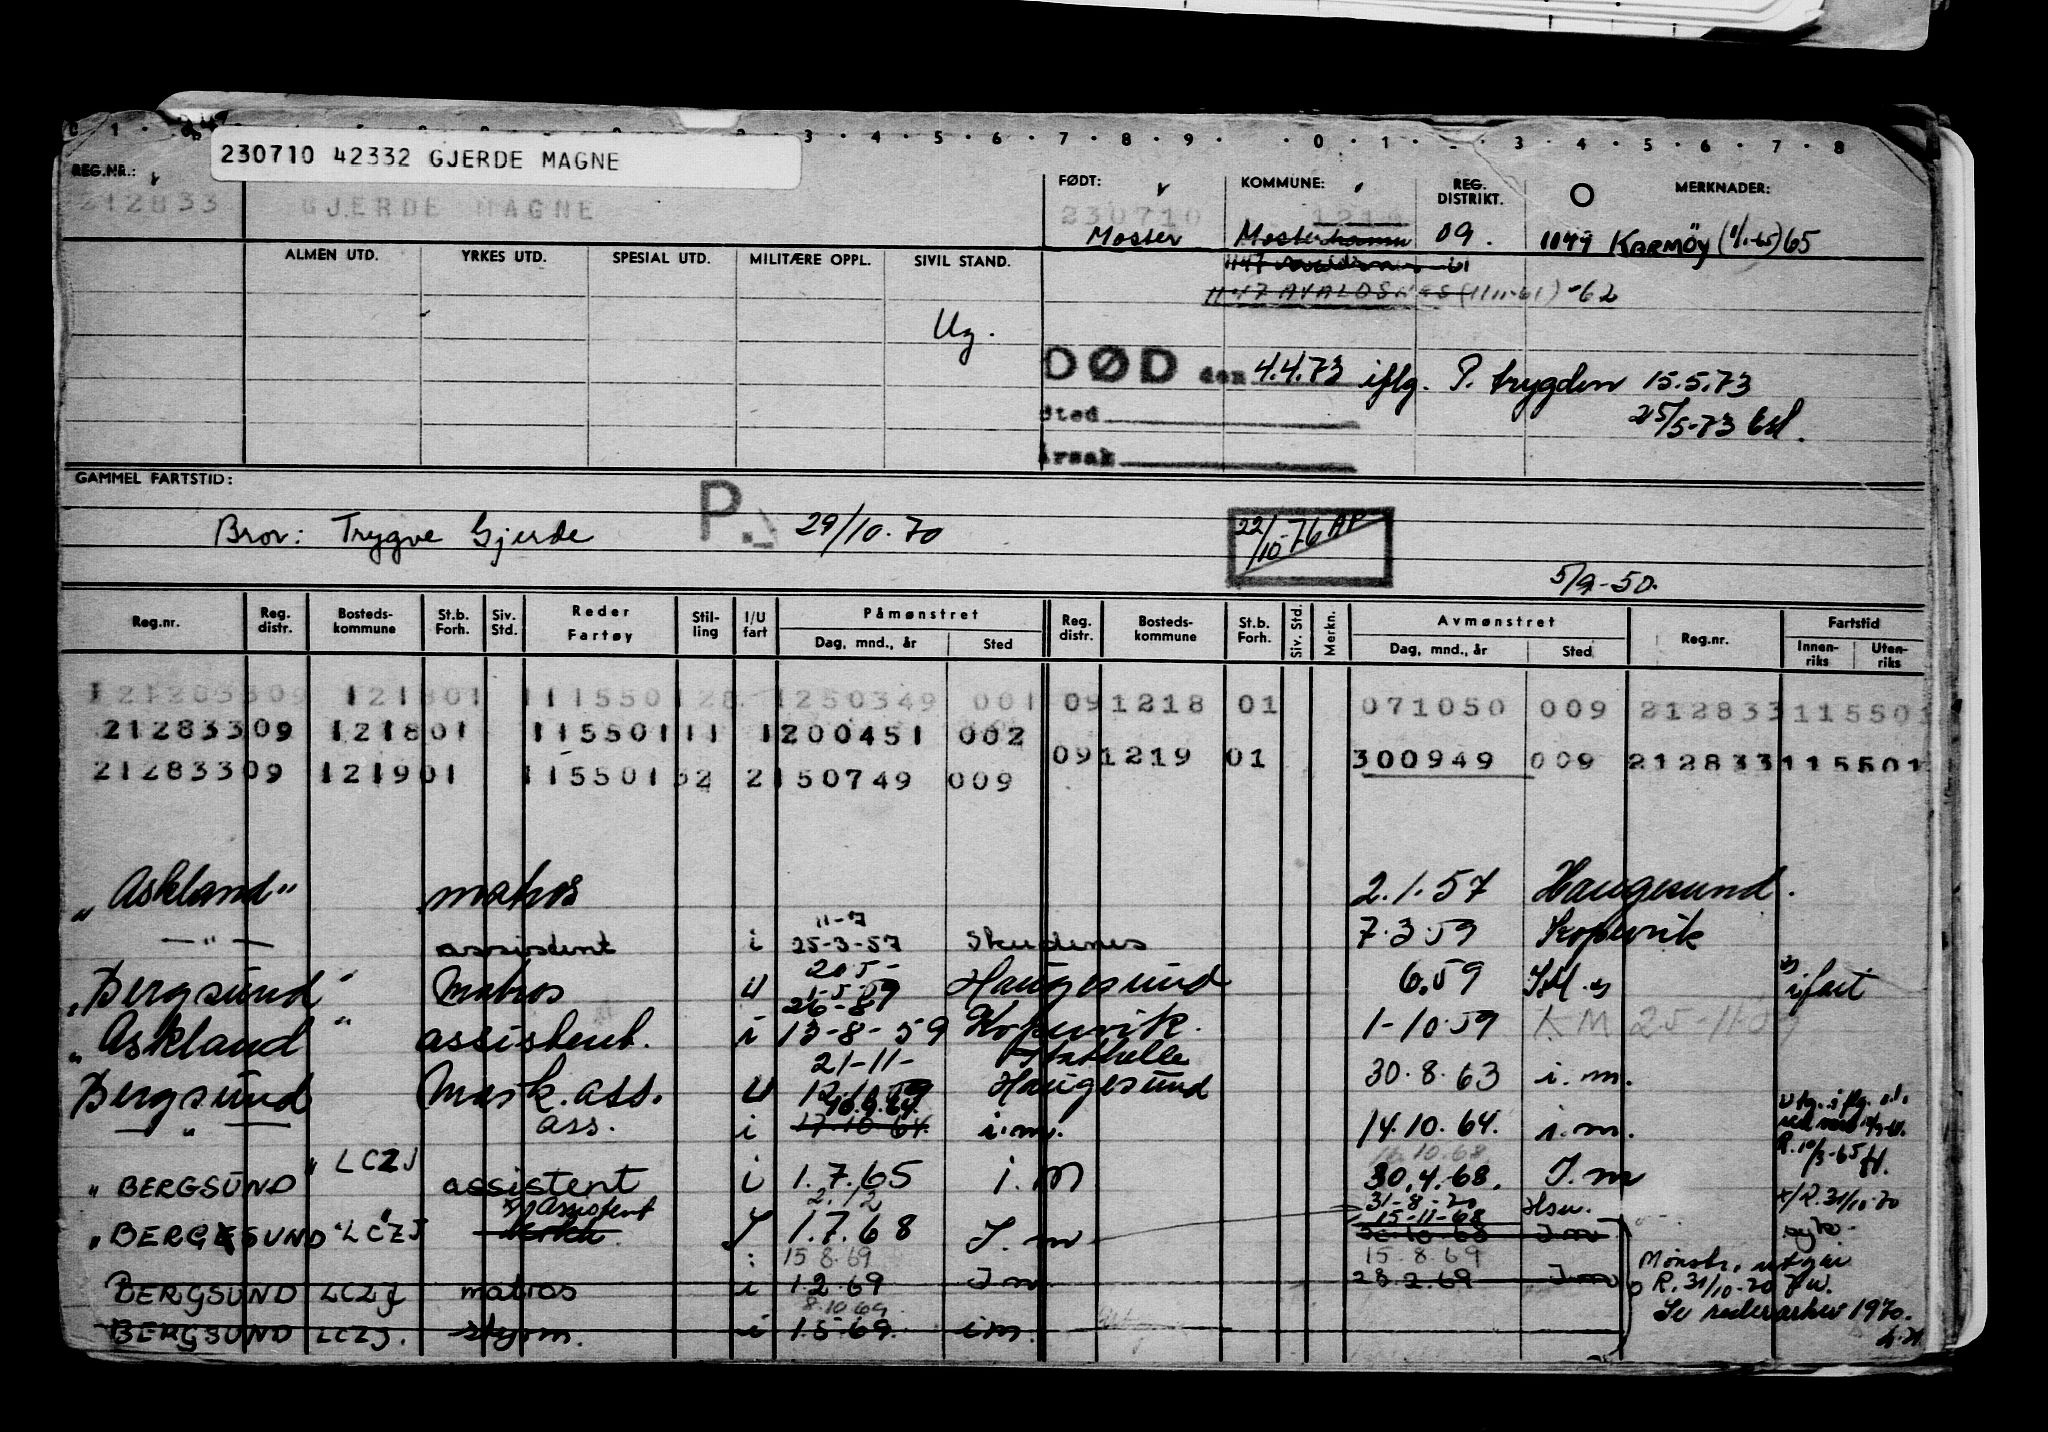 230710 42332 GJERDE MAGNE
REG.NR.: FØDT: KOMMUNE: REG. DISTRIKT. MERKNADER:
212833 GJERDE MAGNE 230710 1218
Moster Mosterhamn 09. 1149 KARMÖY (1/1-65) 65
ALMEN UTD. YRKES UTD. SPESIAL UTD. MILITÆRE OPPL. SIVIL STAND.
1147 AVALDSNES (1/11-61) -62
Ug.
DØD den 4.4.73 iflg. P. trygden 15.5.73
Sted 25/5-73
Årsak
GAMMEL FARTSTID:
Bror: Trygve Gjerde P. 29/10.70 22/10-76 AP
5/9-50.
Reg.nr. Reg. distr. Bosteds-kommune St.b. Forh. Siv. Std. Reder Fartøy Stil-ling I/U fart Påmønstret Dag, mnd., år Sted Reg. distr. Bosteds-kommune St.b. Forh. Siv. Std. Merkn. Avmønstret Dag, mnd., år Sted Reg.nr. Fartstid Innen-riks Uten-riks
121801 111550128 1250349 001 091218 01 071050 009 212833115501
21283309 121801 11550111 1200451 002
091219 01 300949 009 212833115501
21283309 121901 115501 32 2150749 009
"Askland" matros 2.1.57 Haugesund.
— " — assistent i 25-3-57 Skudenes 7.3.59 Kopervik
11-7
"Bergsund" Matros U 26-8- Haugesund 6.59 i fart
"Askland" assistent. i 13-8-59 Kopervik. 1-10-59 KM 25-11-59
21-11- Stathelle
Bergsund Mask.ass. U Haugesund 30.8.63 i.m.
— " — ass. i 17.10.64. i.m. 14.10.64. i.m.
R.10/3-65
"BERGSUND" LCZJ assistent i 1.7.65 i.m 30.4.68. I.m
2.12 31-8-70 Hsu. x/R.31/10-70
x) Assistent 15-11-68
"BERGESUND" LCZJ 1.7.68 I.m 30.10.68 I.m
15.8.69 15.8.69 Mønstr. utgår
BERGSUND LCZJ matros i 1.2.69 I m 28.2.69 I m R. 31/10-70
8.10.69 Se rederarkiv 1970.
BERGSUND LCZJ. styrm. i 1.5.69. i.m.